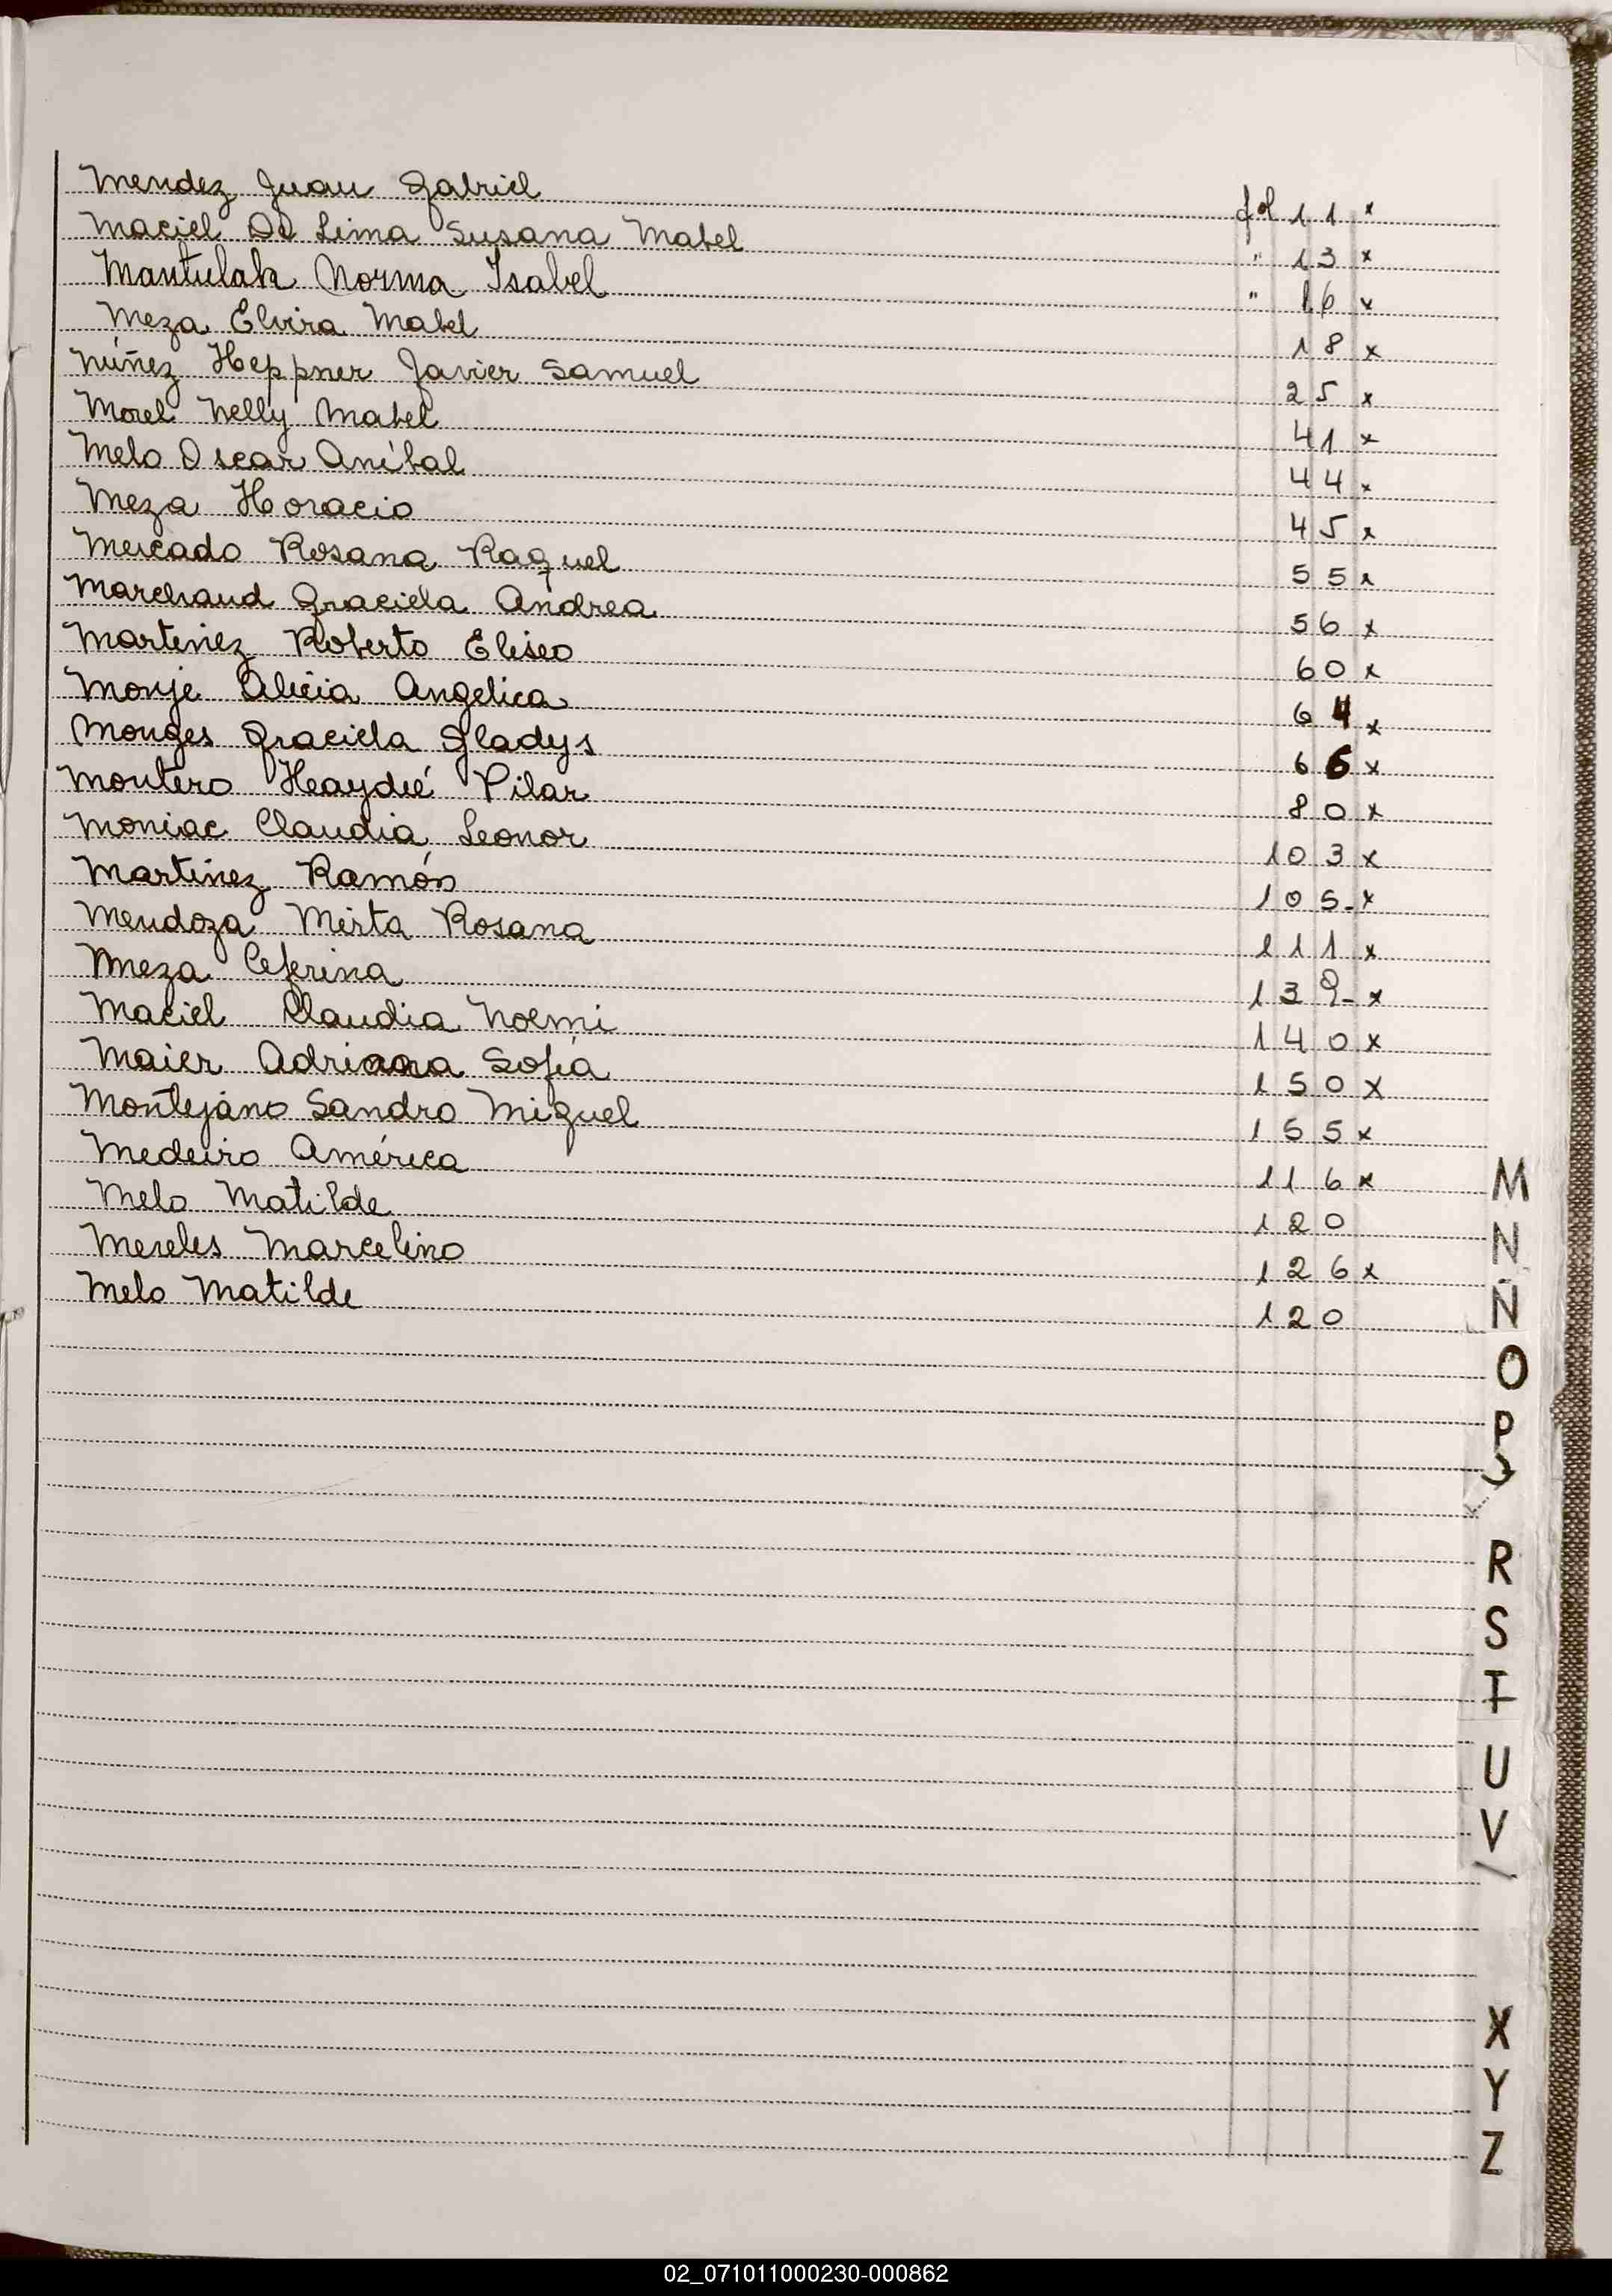 Mendez Juan Gabriel fol 11 x
Maciel De Lima Susana Mabel " 13 x
Mantulak Norma Isabel " 16 x
Meza Elvira Mabel 18 x
Núñez Heppner Javier Samuel 25 x
Morel Nelly Mabel 41 x
Melo Oscar Aníbal 44 x
Meza Horacio 45 x
Mercado Rosana Raquel 55 x
Marchand Graciela Andrea 56 x
Martinez Roberto Eliseo 60 x
Monje Alicia Angelica 64 x
Monges Graciela Gladys 66 x
Montero Haydeé Pilar 80 x
Moniac Claudia Leonor 103 x
Martinez Ramón 105- x
Mendoza Mirta Rosana 111 x
Meza Ceferina 139- x
Maciel Claudia Noemi 140 x
Maier Adriana Sofía 150 x
Montejano Sandro Miguel 155 x
Medeiro América 116 x
Melo Matilde 120
Mereles Marcelino 126 x
Melo Matilde 120
M
N
Ñ
O
P
R
S
T
U
V
X
Y
Z
02_071011000230-000862